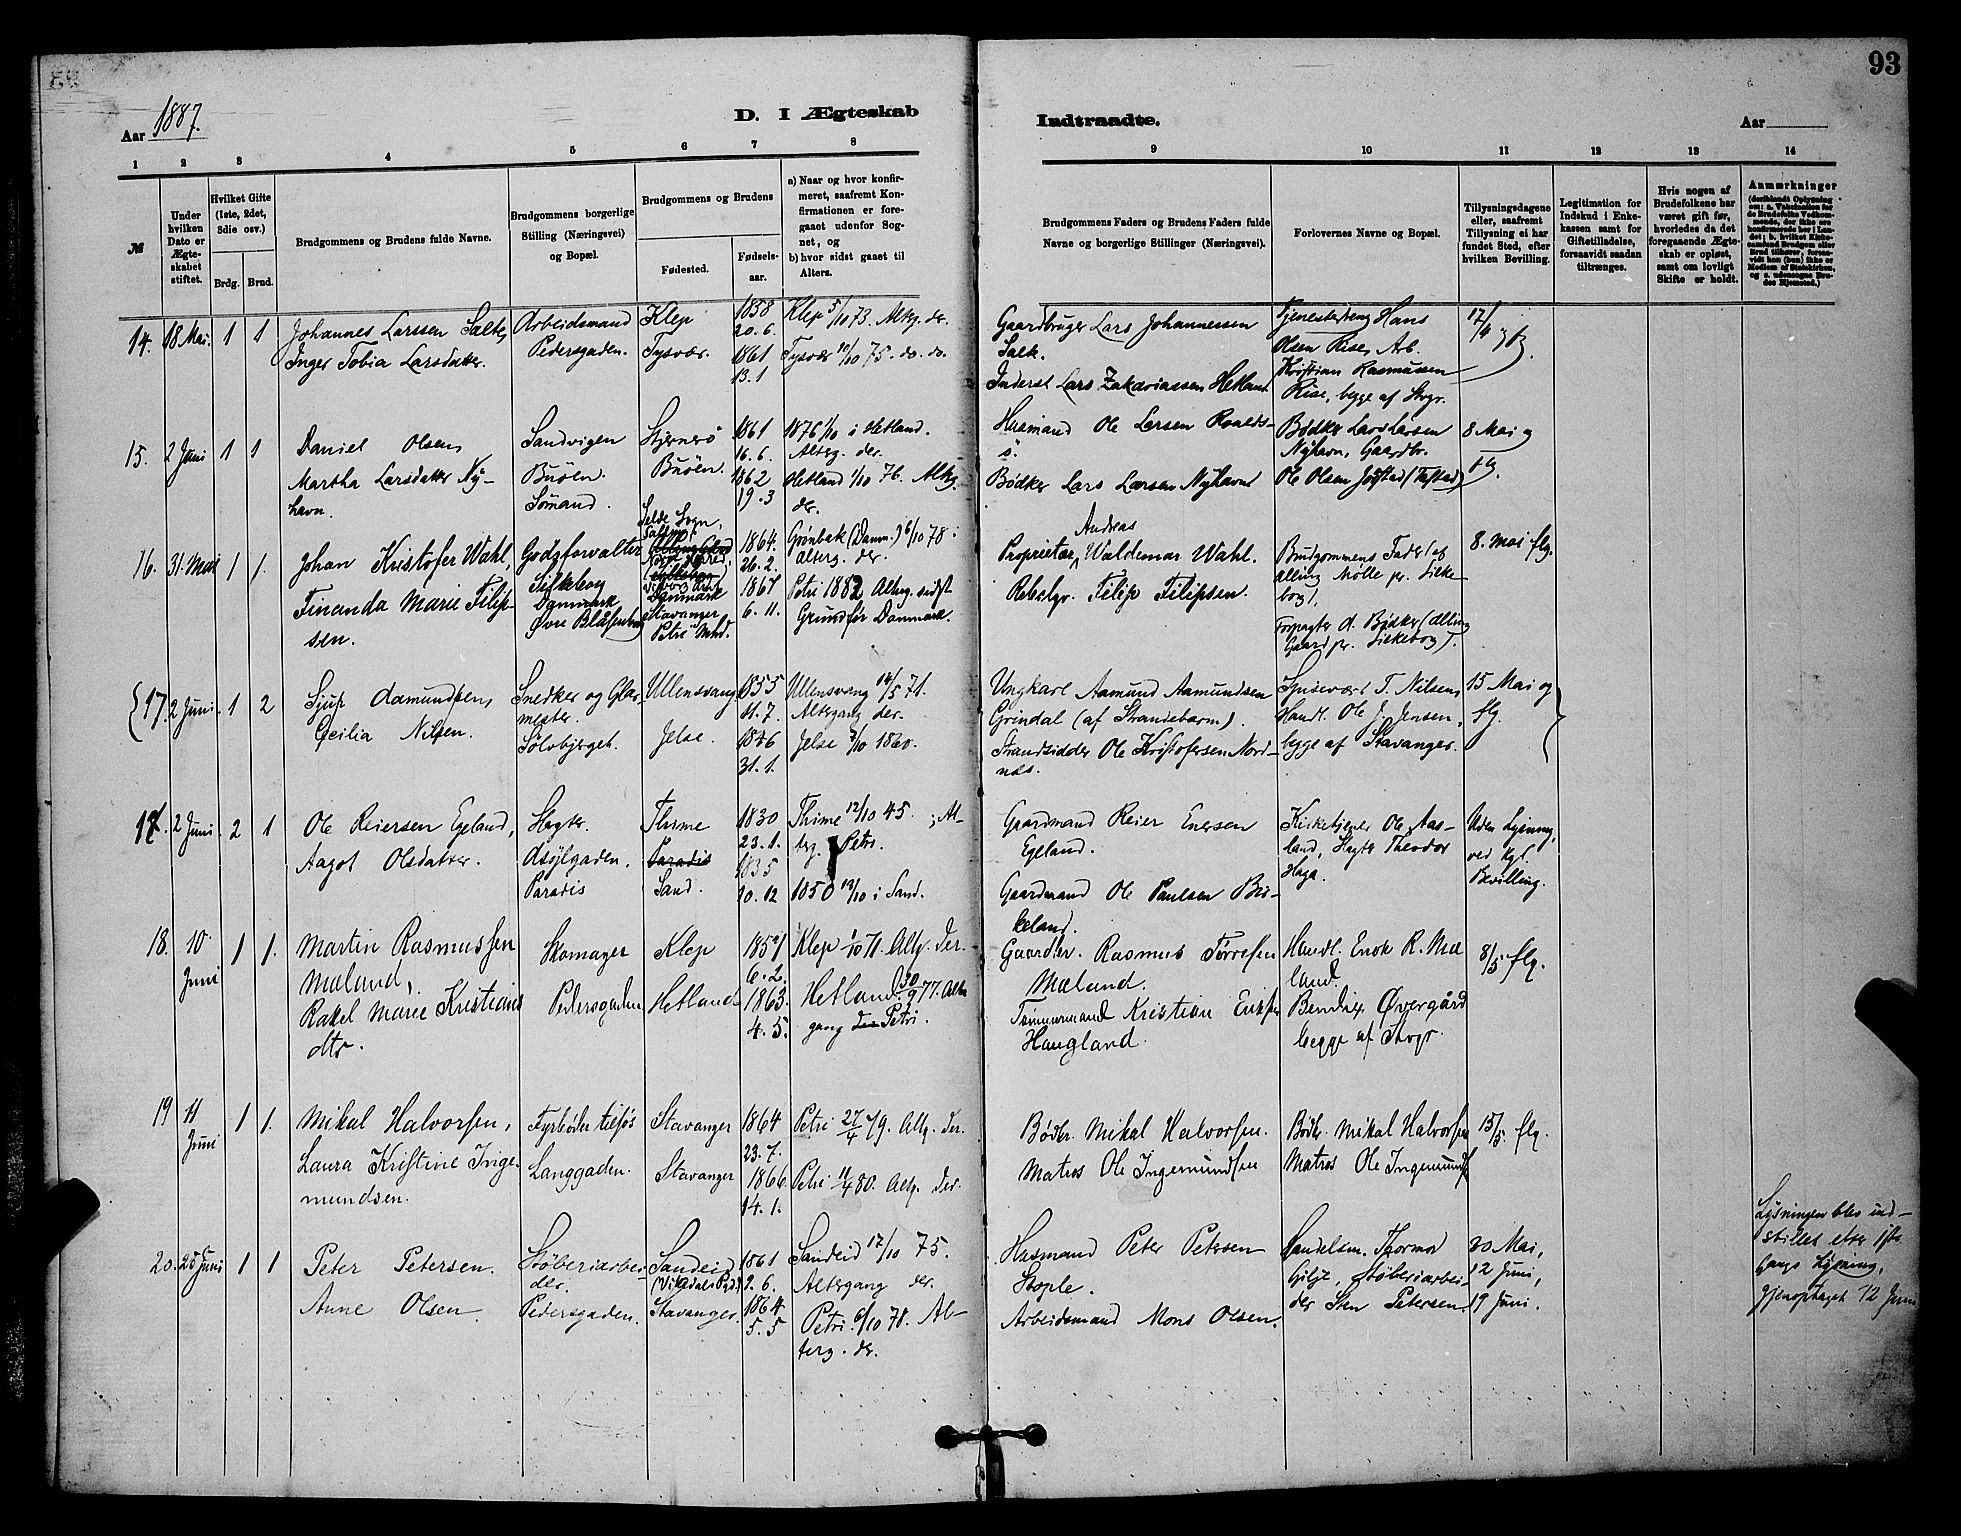 93
Aar 1887.
D. I Ægteskab
Indtraadte.
Aar
1 2 3 4 5 6 7 8 9 10 11 12 13 14
№
Under hvilken Dato er Ægteskabet stiftet.
Hvilket Gifte (1ste, 2det, 3die osv.)
Brdg. Brud.
Brudgommens og Brudens fulde Navne.
Brudgommens borgerlige Stilling (Næringsvei) og Bopæl.
Brudgommens og Brudens
Fødested.
Fødsels-aar.
a) Naar og hvor konfirmeret, saafremt Konfirmationen er foregaaet udenfor Sognet, og
b) hvor sidst gaaet til Alters.
Brudgommens Faders og Brudens Faders fulde Navne og borgerlige Stillinger (Næringsvei).
Forlovernes Navne og Bopæl.
Tillysningsdagene eller, saafremt Tillysning ei har fundet Sted, efter hvilken Bevilling.
Legitimation for Indskud i Enkekassen samt for Giftetilladelse, forsaavidt saadan tiltrænges.
Hvis nogen af Brudefolkene har været gift før, hvorledes da det foregaaende Ægteskab er opløst, samt om lovligt Skifte er holdt.
Anmærkninger
14. 18 Mai. 1 1
Johannes Larssen Salte,
Inger Tobia Larsdatter.
Arbeidsmand
Pedersgaden.
Klep
Tysvær.
1858
20. 6.
1861
13. 1
Klep 5/10 73. Altg. der.
Tysvær 10/10 75. do. do.
Gaardbruger Lars Johannessen
Salte.
Inderst Lars Zakariassen Hetland
Tjenestedreng Hans
Olsen Rise, Arb.
Kristian Rasmussen
Rise, begge af Stvgr.
17/4 og flg.
15. 2 Juni 1 1
Daniel Olsen,
Martha Larsdatter Ny-
havn.
Sandvigen
Buøen.
Sømand.
Stjernerø
Buøen.
1861
16. 6.
1862
19. 3
1876 1/10 i Hetland.
Alterg. der.
Hetland 1/10 76. Altg.
der.
Husmand Ole Larsen Roalds-
ø.
Bødker Lars Larsen Nyhavn
Bødker Lars Larsen
Nyhavn, Gaardbr.
Ole Olsen Jøstad (Tastad)
8 Mai og
flg.
16. 31. Mai 1 1.
Johan Kristofer Wahl,
Finanda Marie Filip-
sen.
Godsforvalter
Silkeborg
Danmark
Øvre Blåsenborg
Danmark
Stavanger
Petri Mhd.
1864.
26. 2.
1867
6. 11.
Grønbæk (Danm.) 6/10 78.
alterg. der.
Petri 1882 Alterg. sidst
Grundfør Danmark.
Andreas
Proprietær, Waldemar Wahl.
Rebslgr. Filip Filipsen.
Brudgommens Fader (af
Alling Mølle pr. Silke-
borg),
Forpagter A. Bødker (Alling
Gaard pr. Silkeborg).
8. Mai flg.
17. 2 Juni. 1 2
Sjur Aamundsen,
Cecilia Nilsen.
Snedker og Glar-
mester.
Sølvbjerget.
Ullensvang
Jelse.
1855
11. 7.
1846
31. 1.
Ullensvang 14/5 71.
Altergang der.
Jelse 7/10 1860.
Ungkarl Aamund Aamundsen
Grindal (af Strandebarm).
Strandsidder Ole Kristofersen Nord-
nes.
Spisevært T. Nilsen,
Handl. Ole J. Jensen,
begge af Stavanger.
15 Mai og
flg.
17. 2 Juni. 2 1
Ole Reiersen Egeland,
Aagot Olsdatter.
Slagter.
Asylgaden.
Paradis
Thime
Paradis
Sand.
1830
23. 1.
1835
10. 12
Thime 12/10 45.; Al-
terg. Petri.
1850 13/10 i Sand.
Gaardmand Reier Enersen
Egeland.
Gaardmand Ole Paulsen Bir-
keland.
Kirketjener Ole Aas-
land, Slagter Theodor
Haga.
Uden Lysning,
ved Kgl.
Bevilling.
18. 10. Juni 1 1.
Martin Rasmussen
Mæland,
Rakel Marie Kristians
dtr.
Skomager
Pedersgaden
Klep
Hetland
1851
6. 2.
1863.
4. 5.
Klep 1/10 71. Altg. der.
Hetland 30/9 77. Alter
gang der Petri.
Gaardbr. Rasmus Torresen
Mæland.
Tømmermand Kristian Eriksen
Haugland.
Handl. Enok R. Mæ
land.
Bendix Øvergård
begge af Stvgr.
8/5 flg.
19 11 Juni 1 1.
Mikal Halvorsen,
Laura Kristine Inge-
mundsen.
Fyrbøder tilsøs
Langgaden.
Stavanger
Stavanger
1864
23. 7.
1866.
14. 1.
Petri 27/4 79. Altg. der.
Petri 11/4 80. Altg. der.
Bødker Mikal Halvorsen.
Matros Ole Ingemundsen
Bødk. Mikal Halvorsen
Matros Ole Ingemunds
15/5. flg.
20. 25 Juni 1 1
Peter Petersen.
Anne Olsen.
Støberiarbei-
der.
Pedersgaden.
Sandeid
Stavanger.
1861
2. 6.
1864
5. 5
Sandeid 17/10 75.
Altergang der.
Petri 6/10 78. Al-
terg. der.
Husmand Peter Petersen
Stople.
Arbeidsmand Mons Olsen.
Handelsm. Thormod
Gilje, Støberiarbei-
der Sten Petersen.
30 Mai,
12 Juni,
19 Juni.
Lysningen blev ind-
stillet efter 1ste
Gangs Lysning,
gjenoptaget 12 Juni